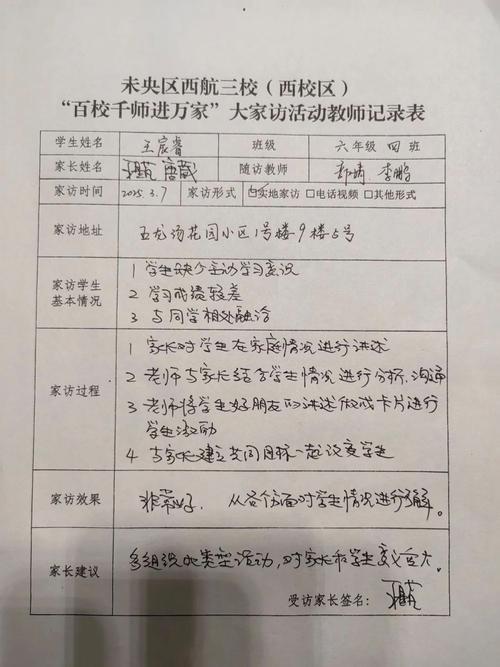 未央区西航三校（西校区）
“百校千师进万家”大家访活动教师记录表
学生姓名 王宸睿 班级 六年级 四班
家长姓名 随访教师 李鹏
家访时间 2025.3.7 家访形式 ☑实地家访 □电话视频 □其他形式
家访地址 五龙汤花园小区1号楼9楼5号
家访学生
基本情况
1 学生缺少主动学习意识
2 学习成绩较差
3 与同学相处融洽
家访过程
1 家长对学生在家庭情况进行讲述
2 老师与家长结合学生情况进行分析、沟通
3 老师将学生好朋友的讲述做成卡片进行
学生激励
4 与家长建立共同目标一起改变学生
家访效果 非常好，从各个方面对学生情况进行了解。
家长建议 多组织此类型活动，对家长和学生意义重大。
受访家长签名：